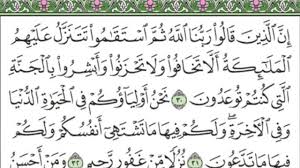 إِنَّ ٱلَّذِينَ قَالُوا۟ رَبُّنَا ٱللَّهُ ثُمَّ ٱسْتَقَٰمُوا۟ تَتَنَزَّلُ عَلَيْهِمُ
ٱلْمَلَٰٓئِكَةُ أَلَّا تَخَافُوا۟ وَلَا تَحْزَنُوا۟ وَأَبْشِرُوا۟ بِٱلْجَنَّةِ
ٱلَّتِى كُنتُمْ تُوعَدُونَ ٣٠ نَحْنُ أَوْلِيَآؤُكُمْ فِى ٱلْحَيَوٰةِ ٱلدُّنْيَا
وَفِى ٱلْءَاخِرَةِ وَلَكُمْ فِيهَا مَا تَشْتَهِىٓ أَنفُسُكُمْ وَلَكُمْ
فِيهَا مَا تَدَّعُونَ ٣١ نُزُلًا مِّنْ غَفُورٍ رَّحِيمٍ ٣٢ وَمَنْ أَحْسَنُ